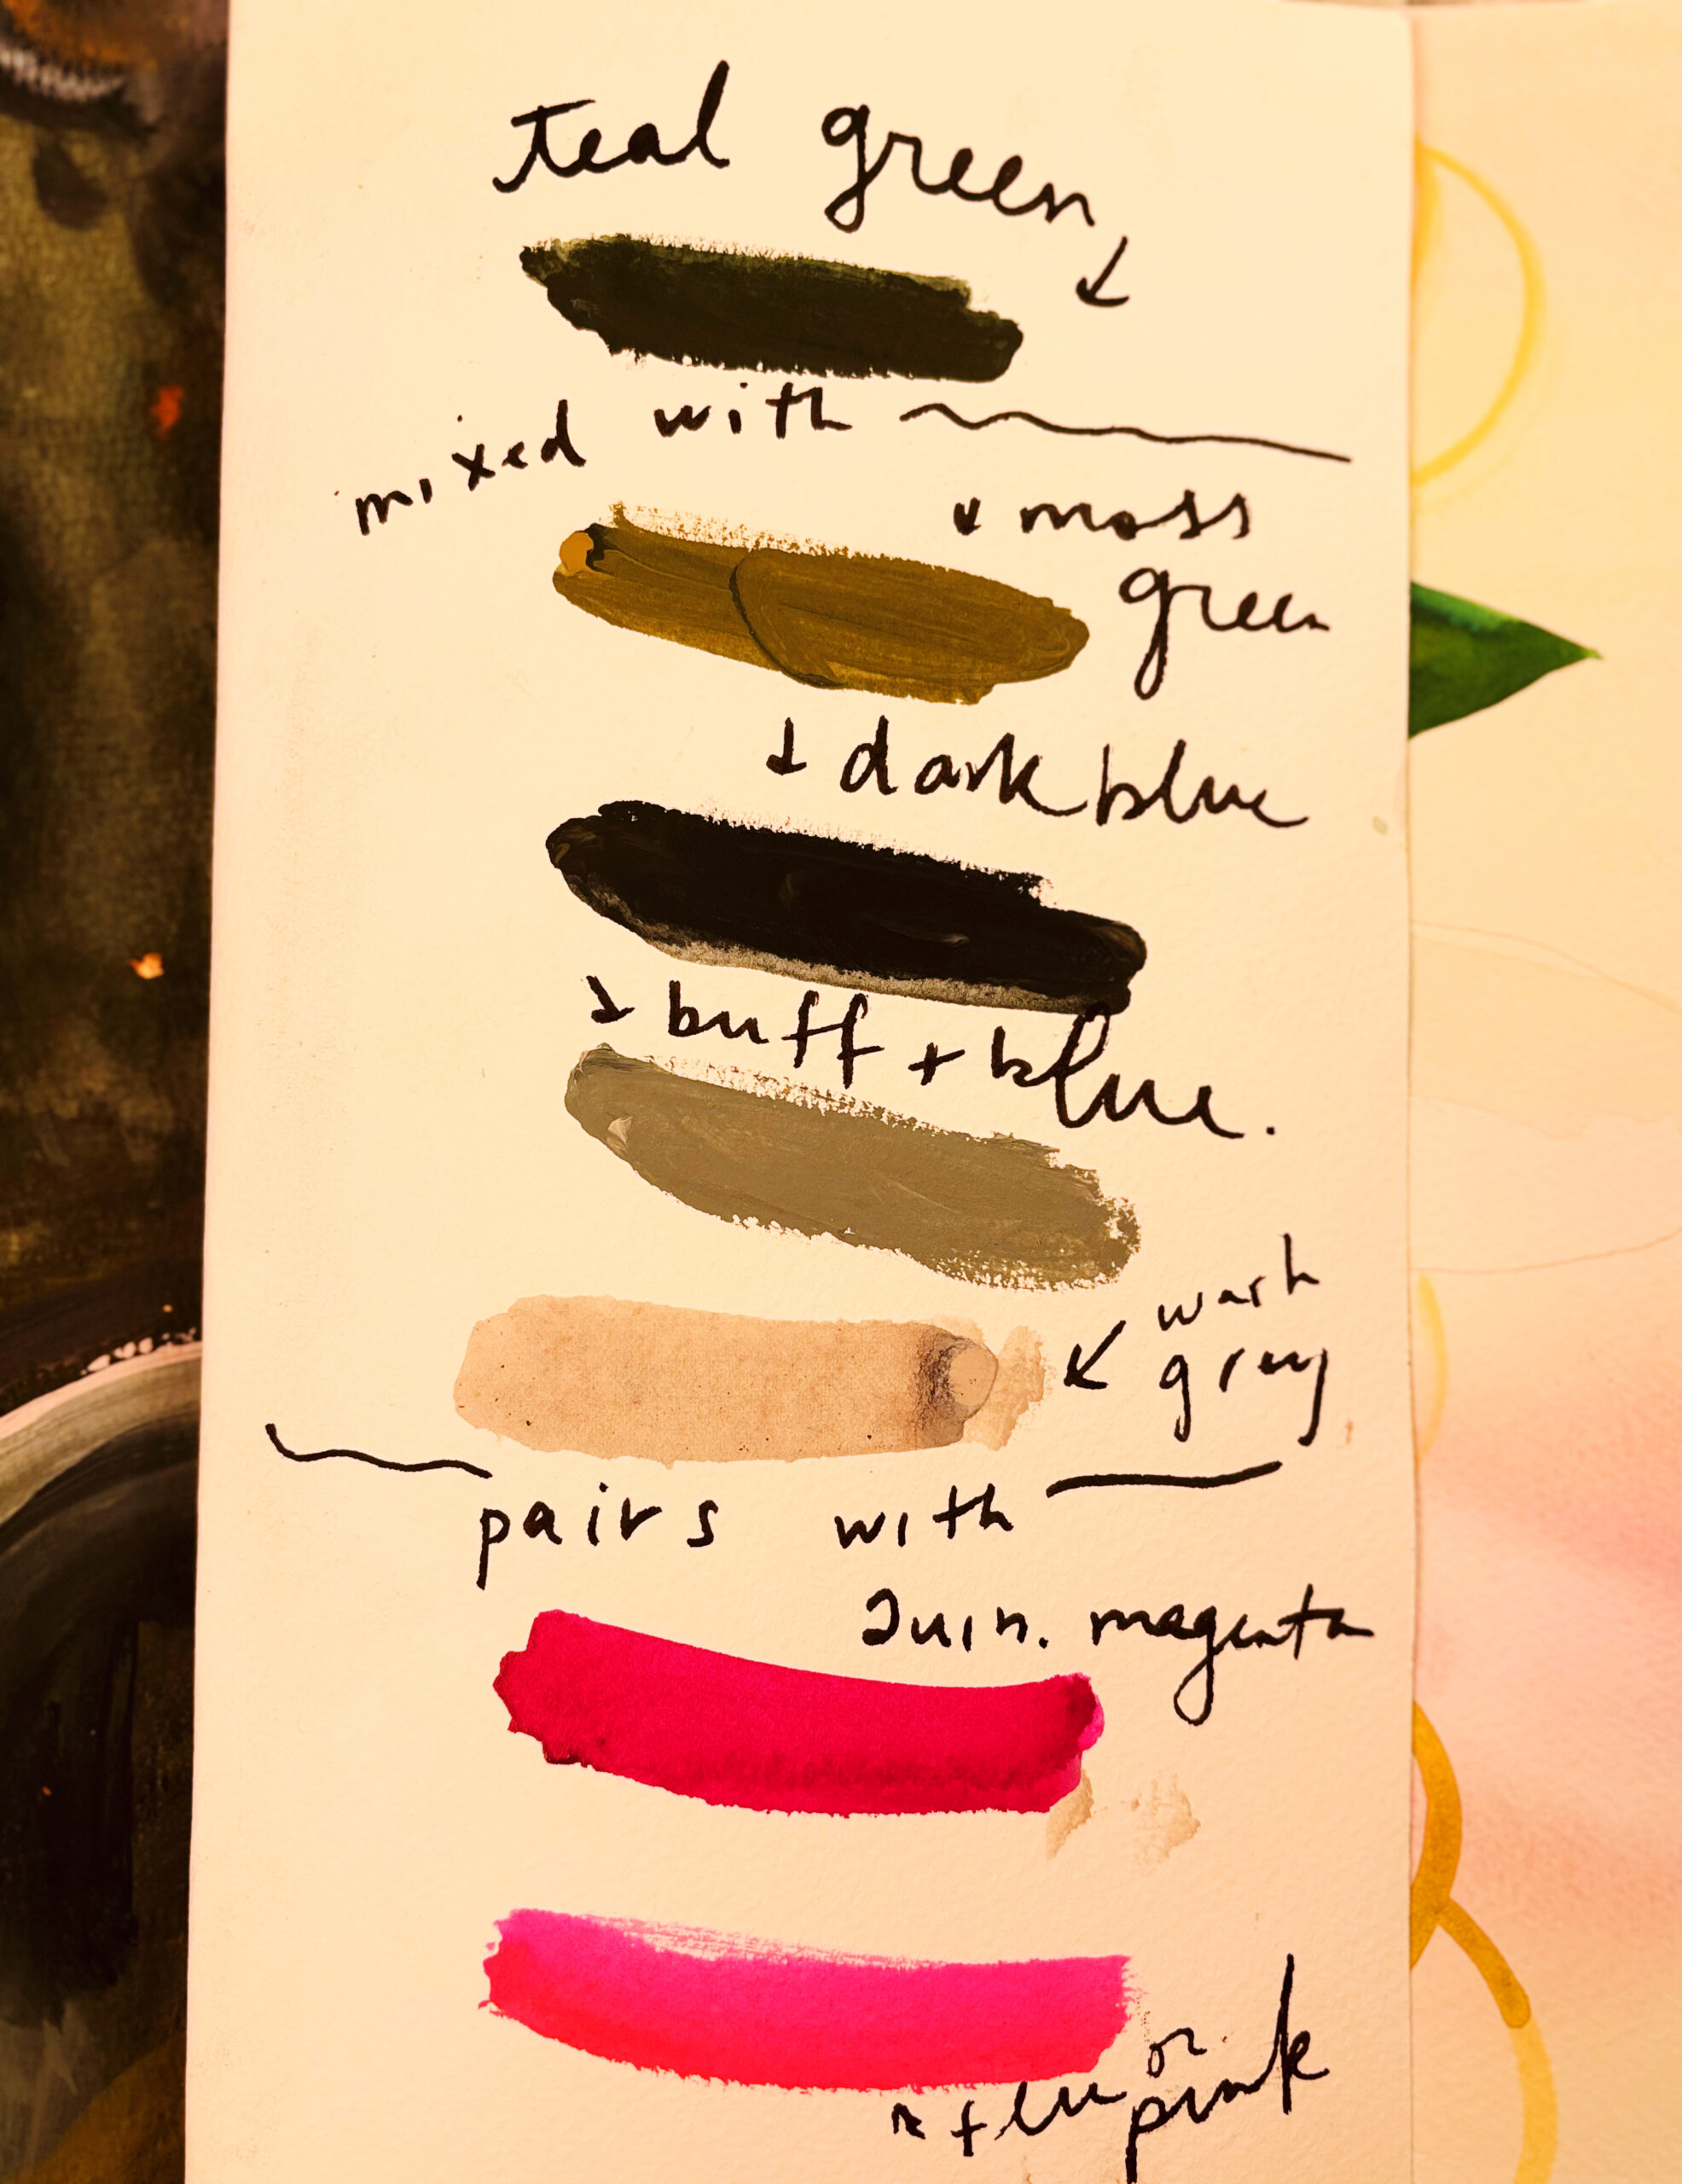 teal green
mixed with
moss
green
dark blue
buff + blue.
wash
grey
pairs with
Quin. magenta
or
pink